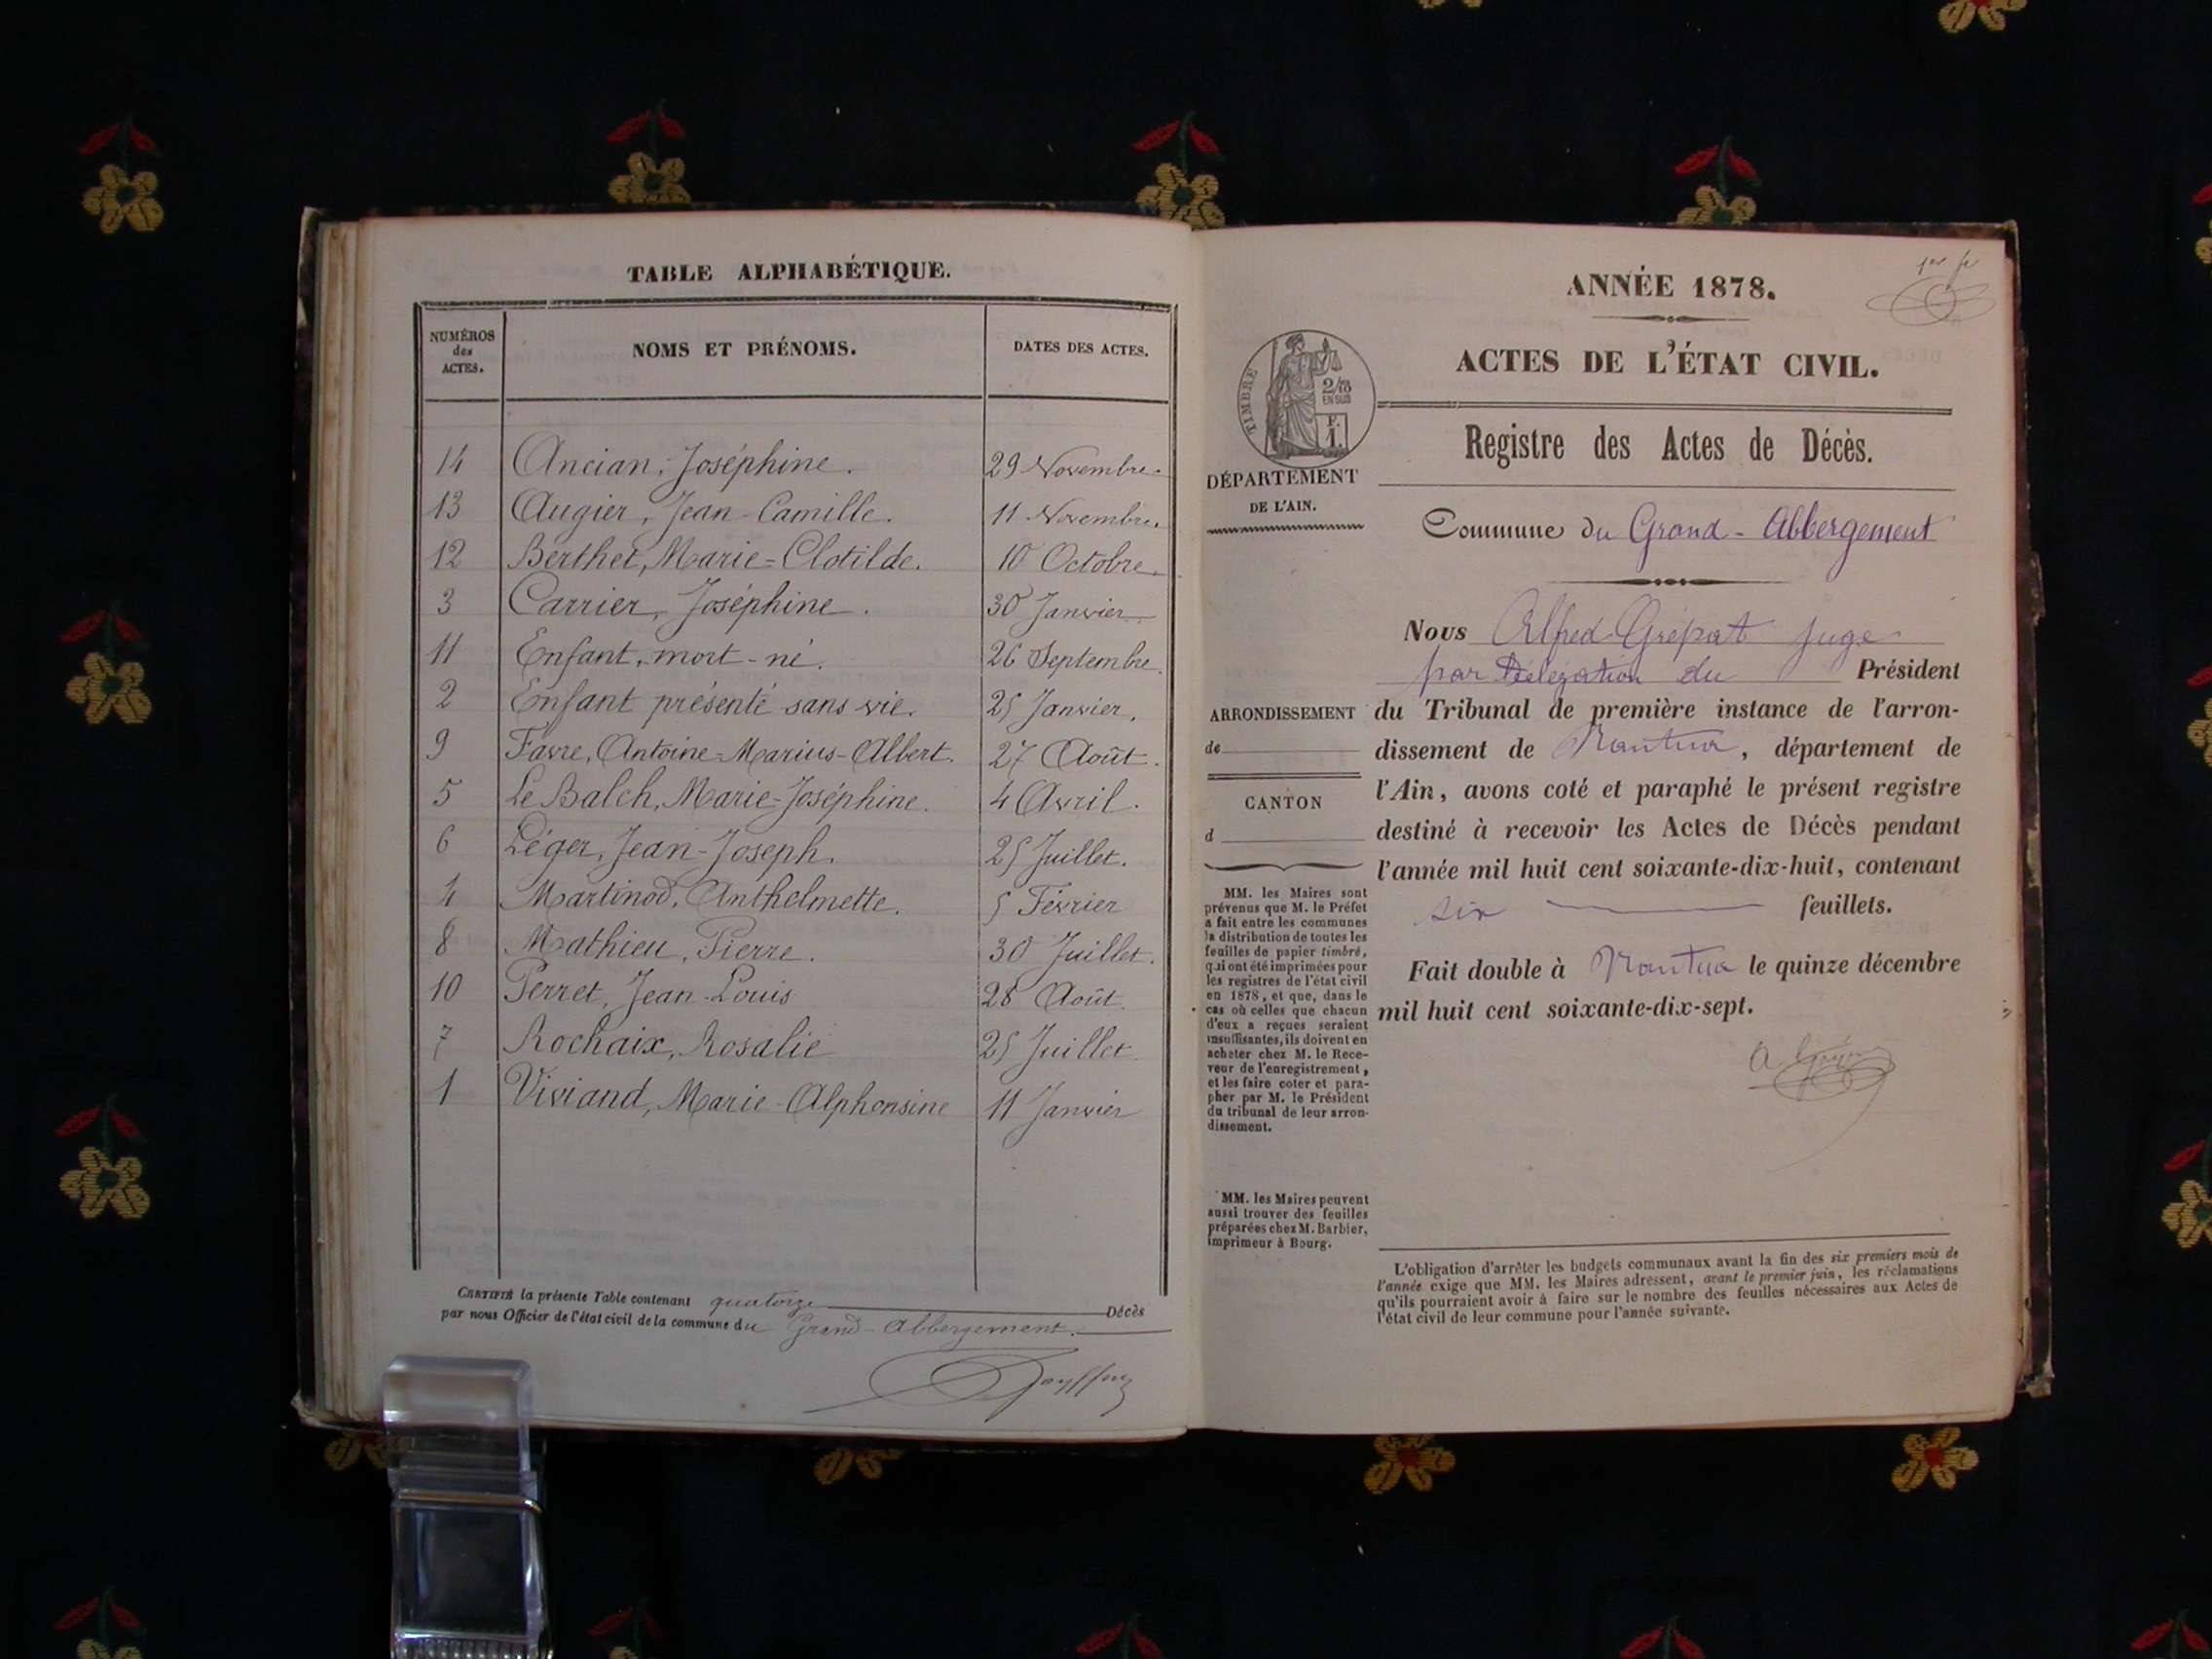 TABLE ALPHABÉTIQUE.
NUMÉROS des ACTES.
NOMS ET PRÉNOMS.
DATES DES ACTES.
14 Ancian, Joséphine. 29 Novembre.
13 Augier, Jean-Camille. 11 Novembre.
12 Berthet, Marie=Clotilde. 10 Octobre.
3 Carrier, Joséphine. 30 Janvier
11 Enfant, mort-né. 26 Septembre.
2 Enfant présenté sans vie. 25 Janvier.
9 Favre, Antoine=Marius-Albert. 27 Août.
5 Le Balch, Marie-Joséphine. 4 Avril.
6 Léger, Jean-Joseph. 25 Juillet.
4 Martinod, Anthelmette. 5 Février
8 Mathieu, Pierre. 30 Juillet.
10 Perret, Jean-Louis 28 Août.
7 Rochaix, Rosalie 25 Juillet.
1 Viviand, Marie-Alphonsine 11 Janvier
CERTIFIÉ la présente Table contenant quatorze Décès
par nous Officier de l'état civil de la commune du Grand-Abbergement.
ANNÉE 1878.
ACTES DE L'ÉTAT CIVIL.
TIMBRE
2/10
EN SUS
F.
1.
Registre des Actes de Décès.
DÉPARTEMENT
DE L'AIN.
Commune du Grand-Abbergement
Nous Alfred Grépat juge
par Délégation du Président
du Tribunal de première instance de l'arron-
dissement de Nantua, département de
l'Ain, avons coté et paraphé le présent registre
destiné à recevoir les Actes de Décès pendant
l'année mil huit cent soixante-dix-huit, contenant
six feuillets.
Fait double à Nantua le quinze décembre
mil huit cent soixante-dix-sept.
ARRONDISSEMENT
de
CANTON
d
MM. les Maires sont
prévenus que M. le Préfet
a fait entre les communes
la distribution de toutes les
feuilles de papier timbré,
qui ont été imprimées pour
les registres de l'état civil
en 1878, et que, dans le
cas où celles que chacun
d'eux a reçues seraient
insuffisantes, ils doivent en
acheter chez M. le Rece-
veur de l'enregistrement,
et les faire coter et para-
pher par M. le Président
du tribunal de leur arron-
dissement.
MM. les Maires peuvent
aussi trouver des feuilles
préparées chez M. Barbier,
imprimeur à Bourg.
L'obligation d'arrêter les budgets communaux avant la fin des six premiers mois de
l'année exige que MM. les Maires adressent, avant le premier juin, les réclamations
qu'ils pourraient avoir à faire sur le nombre des feuilles nécessaires aux Actes de
l'état civil de leur commune pour l'année suivante.